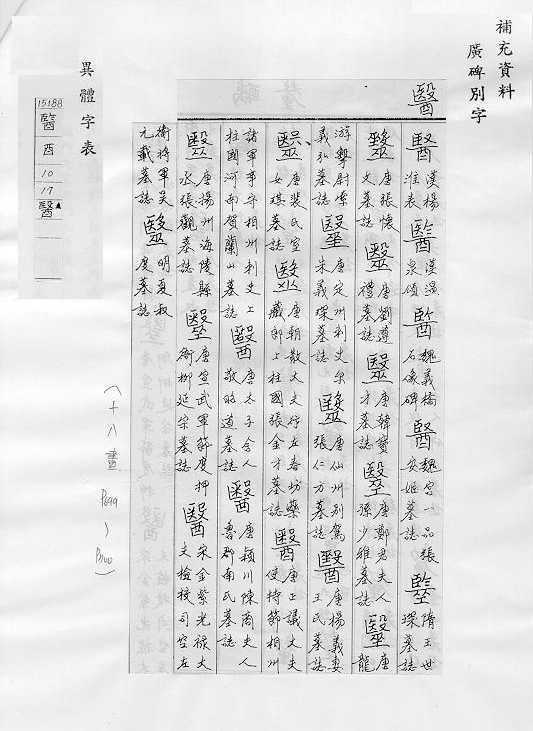 補充資料
廣碑別字
醫
醫 漢楊淮表 醫 漢泉頌 醫 魏義橋石像碑 醫 魏宮一品張安姬墓誌 毉 隋王世琛墓誌
毉 唐張懷文墓誌 毉 唐劉遵禮墓誌 毉 唐韓寶才墓誌 毉 唐鄭君夫人孫少雅墓誌 毉 唐龍
游擊尉義弘墓誌 毉 唐定州刺史尔朱義琛墓誌 毉 唐仙州別駕張仁方墓誌 醫 唐楊義妻王氏墓誌
毉 唐裴氏室女琪墓誌 毉 唐朝散大夫行左春坊藥藏郎上柱國張金才墓誌 醫 唐正議大夫使持節相州
諸軍事守相州刺史上柱國河南賀蘭山墓誌 醫 唐太子舍人敬昭道墓誌 醫 唐穎川陳商夫人魯郡南氏墓誌
毉 唐揚州海陵縣丞張觀墓誌 毉 唐宣武軍節度押衙柳延宗墓誌 醫 宋金紫光祿大夫檢校司空左
衛將軍吳元載墓誌 毉 明夏叔度墓誌
(十八畫 P699)
P700
異體字表
15188
醫
酉
10
17
醫▲